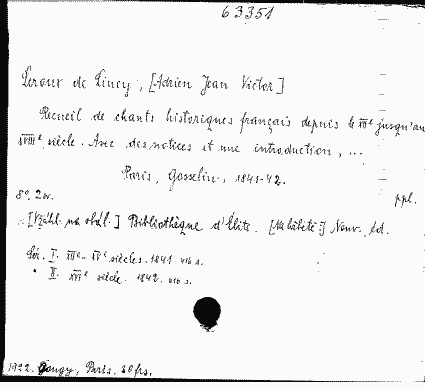 63351
Leroux de Lincy, [Adrien Jean Victor]
Recueil de chants historiques français depuis le XIIe jusqu'au
XVIIIe siècle. Avec des notices et une introduction, ...
Paris, Gosselin, 1841-42.
8°. 2 sv.
ppl.
[Záhl. na obál.] Bibliothèque d'Élite. [Na hřbetě:] Nouv. éd.
Sér. I. XIIe-XVe siècles. 1841 416 s.
" II. XVIe siècle. 1842. 616 s.
1922. Gougy, Paris. 30 frs.